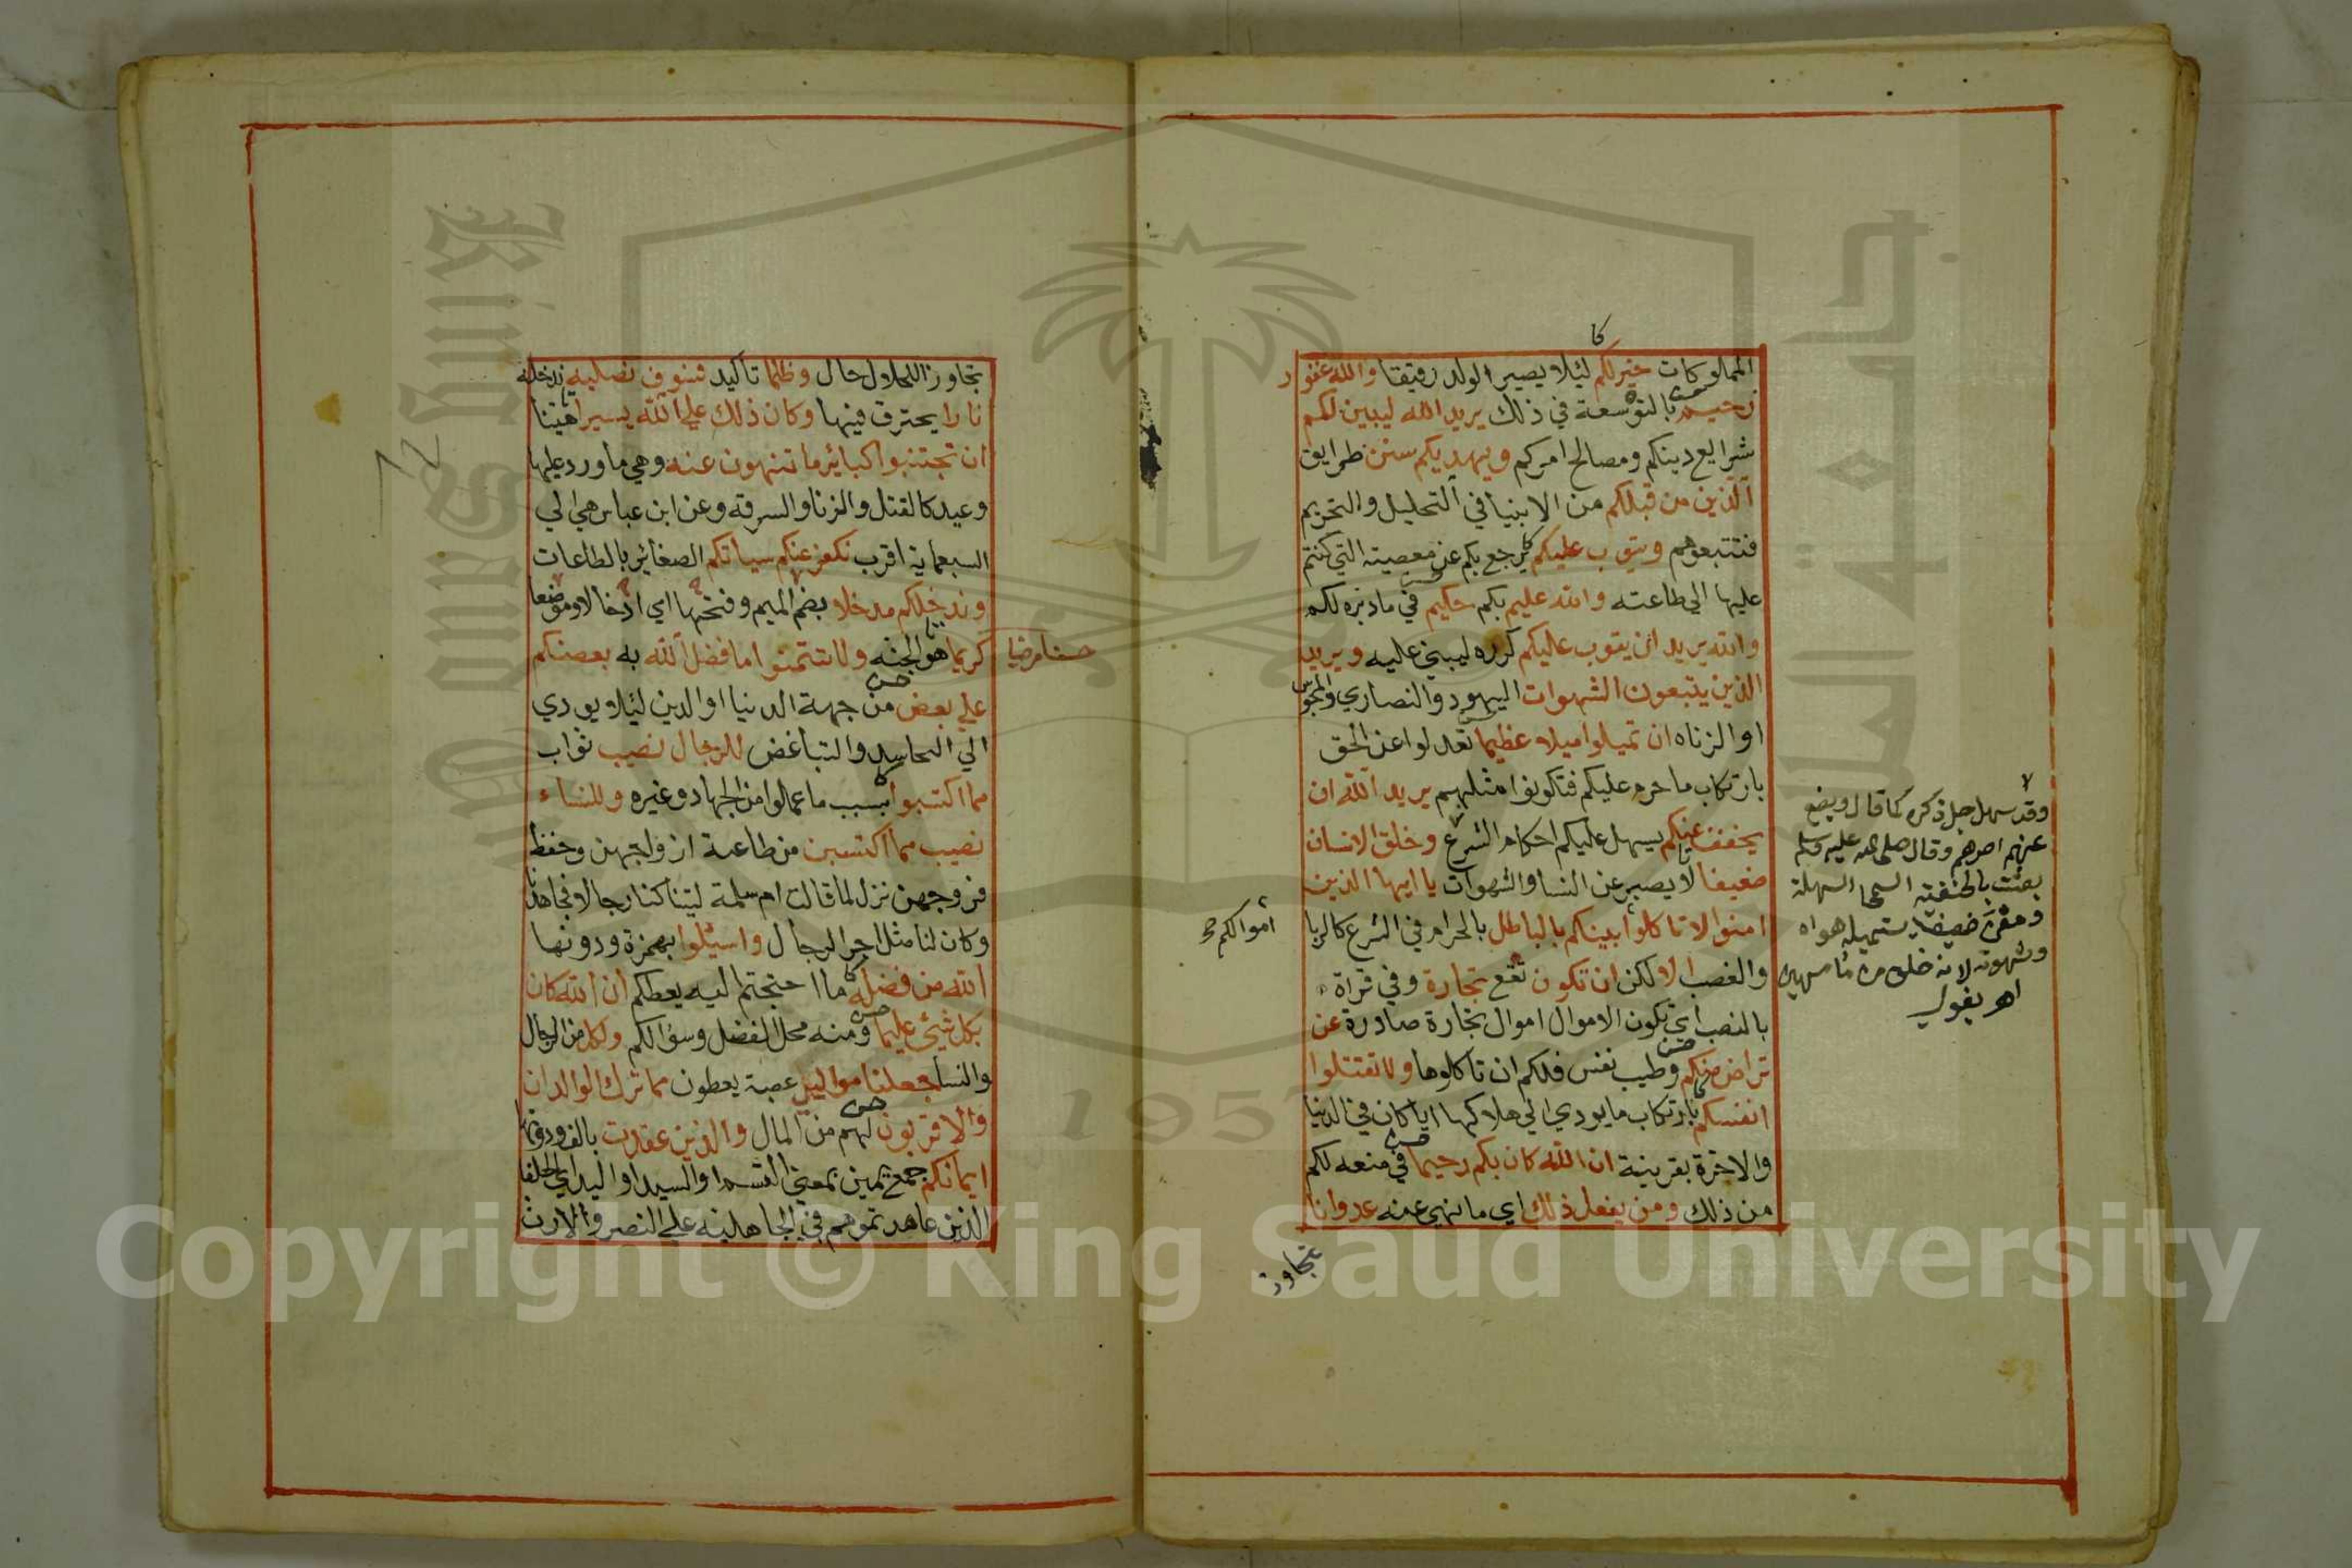 المملوكات خير لكم ليلا يصير الولد رقيقا والله غفور
رحيم بالتوسعة في ذلك يريد الله ليبين لكم
شرايع دينكم ومصالح امركم ويهديكم سنن طرايق
الذين من قبلكم من الانبيا في التحليل والتحريم
فتتبعوهم ويتوب عليكم يرجع بكم عن معصيته التي كنتم
عليها الي طاعته والله عليم بكم حكيم في ما دبره لكم
والله يريد ان يتوب عليكم كرره ليبني عليه ويريد
الذين يتبعون الشهوات اليهود والنصاري والمجوس
او الزناه ان تميلوا ميلا عظيما تعدلوا عن الحق
بارتكاب ما حرم عليكم فتكونوا مثلهم يريد الله ان
يخفف عنكم يسهل عليكم احكام الشرع وخلق الانسان
ضعيفا لا يصبر عن النسا والشهوات يا ايها الذين
امنوا لا تاكلوا بينكم بالباطل بالحرام في الشرع كالربا
والغصب الا لكن ان تكون تقع تجارة وفي قراة
بالنصب اي تكون الاموال اموال تجارة صادرة عن
تراض منكم وطيب نفس فلكم ان تاكلوها ولا تقتلوا
انفسكم بارتكاب ما يودي الي هلاكها ايا كان في الدنيا
والاخرة بقرينة ان الله كان بكم رحيما في منعه لكم
من ذلك ومن يفعل ذلك اي ما نهي عنه عدوانا
تجاوز
اموالكم
وقد سهل جل ذكره كما قال ويضع
عنهم اصرهم وقال صلى الله عليه وسلم
بعثت بالحنفية السمحا السهلة
ضعيفا يستميله هواه
وشهوته لانه خلق من ما مهين
تجاوز الحلال حال وظلما تاكيد فسوف نصليه ندخله
نارا يحترق فيها وكان ذلك علي الله يسيرا هينا
ان تجتنبوا كبائر ما تنهون عنه وهي ما ورد عليها
وعيد كالقتل والزنا والسرقه وعن ابن عباس هي الي
السبعماية اقرب نكفر عنكم سياتكم الصغائر بالطاعات
وندخلكم مدخلا بضم الميم وفتحها اي ادخالا وموضعا
كريما هو الجنه ولا تتمنوا ما فضل الله به بعضكم
حسنا مرضيا
علي بعض من جهة الدنيا او الدين ليلا يودي
الي التحاسد والتباغض للرجال نصيب ثواب
مما اكتسبوا بسبب ما عملوا من الجهاد وغيره وللنساء
نصيب مما اكتسبن من طاعة ازواجهن وحفظ
فروجهن نزل لما قالت ام سلمة ليتنا كنا رجالا فجاهدنا
وكان لنا مثل اجر الرجال واسئلوا بهمزة ودونها
الله من فضله ما احتجتم اليه يعطكم ان الله كان
بكل شيئ عليما ومنه محل الفضل وسؤالكم ولكل من الرجال
والنسا جعلنا موالي عصبة يعطون مما ترك الوالدان
والاقربون لهم من المال والذين عقدت بالف ودونها
ايمانكم جمع يمين بمعني القسم او اليد اي الحلفا
الذين عاهدتموهم في الجاهلية علي النصر والارث
King Saud University
جامعة الملك سعود
1957
Copyright © King Saud University